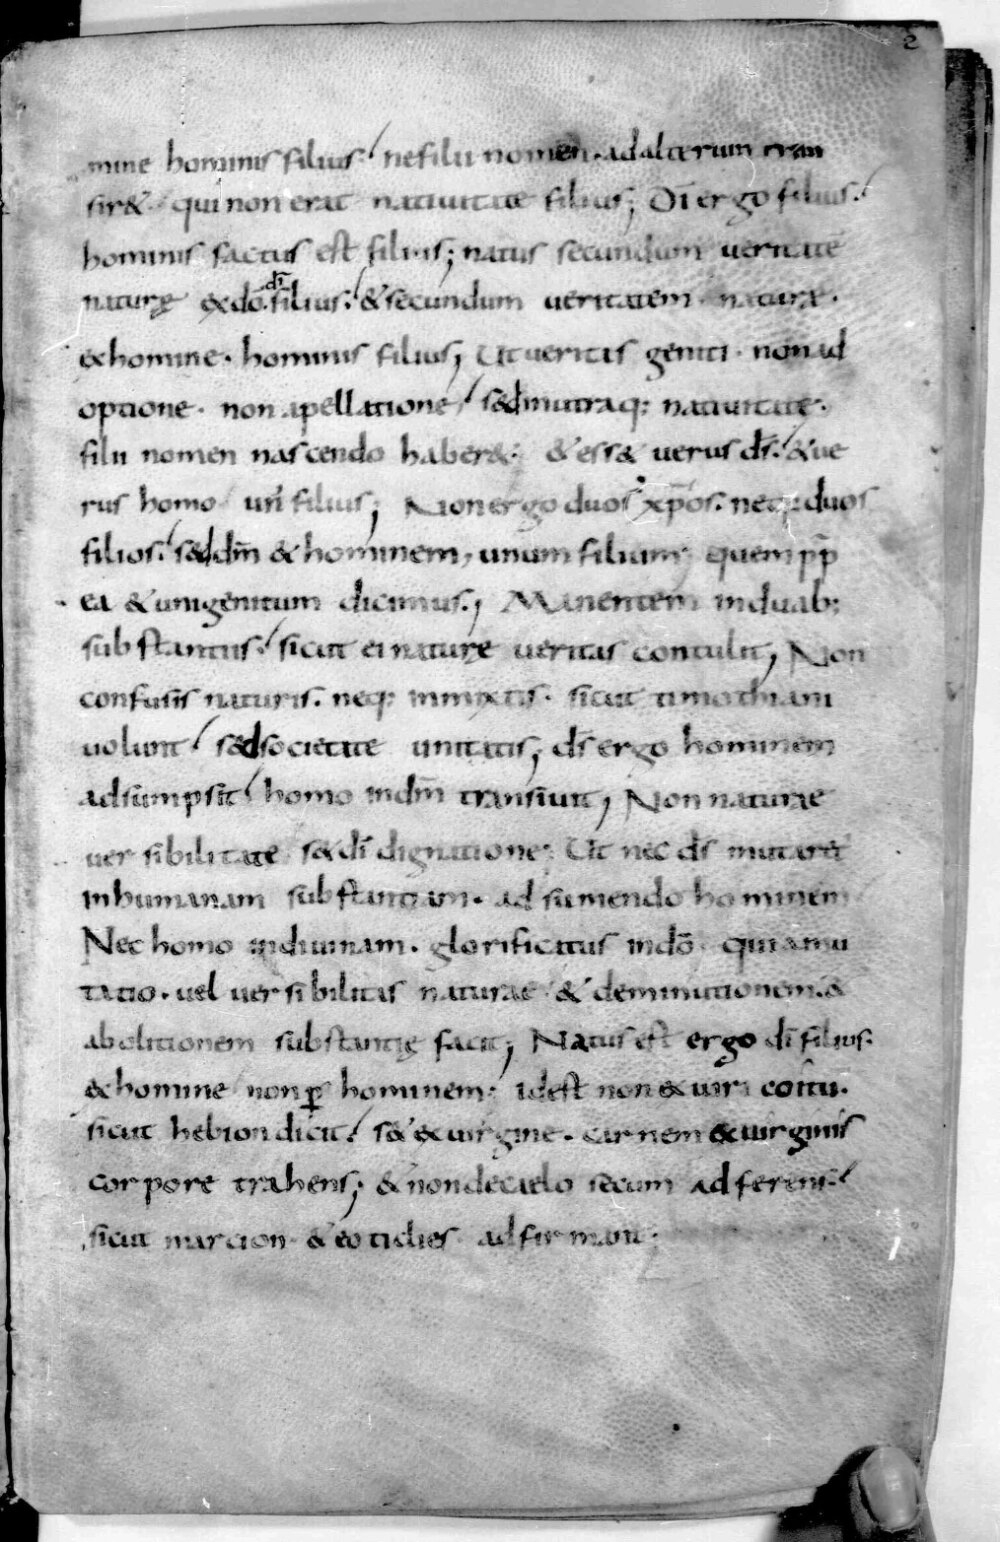 2
mine hominis filius. ne filii nomen. ad alterum tran
sir& qui non erat nativitate filius; Dī ergo filius.
hominis factus est filius; natus secundum veritatē
naturę ex dō. dī filius. & secundum veritatem naturę.
ex homine. hominis filius; Ut veritas geniti. non ad
optione. non apellatione sed in utraq: nativitate.
filii nomen nascendo haber&. & ess& verus d̄s. & ve
rus homo un̄ filius; Non ergo duos xp̄os. neq: duos
filios. sed dm̄ & hominem, unum filium; quem pp̄
ea & unigenitum dicimus; Manentem in duab;
substantiis. sicut ei naturę veritas contulit, Non
confusis naturis. neq: inmixtis. sicut timothiani
volunt sed societate unitatis; d̄s ergo hominem
adsumpsit homo in dm̄ transivit, Non naturae
versibilitate s& dī dignatione; Ut nec d̄s mutaret
in humanam substantiam. adsumendo hominem
Nec homo in divinam. glorificatus in dō quia mu
tatio. vel versibilitas naturae & deminutionem. &
abolitionem substantię facit; Natus est ergo dī filius.
ex homine non ꝑ hominem; id est non ex viri coitu.
sicut hebion dicit. s& ex virgine. carnem ex virginis
corpore trahens; & non de caelo secum adferens.
sicut marcion & eotidies adfirmant;